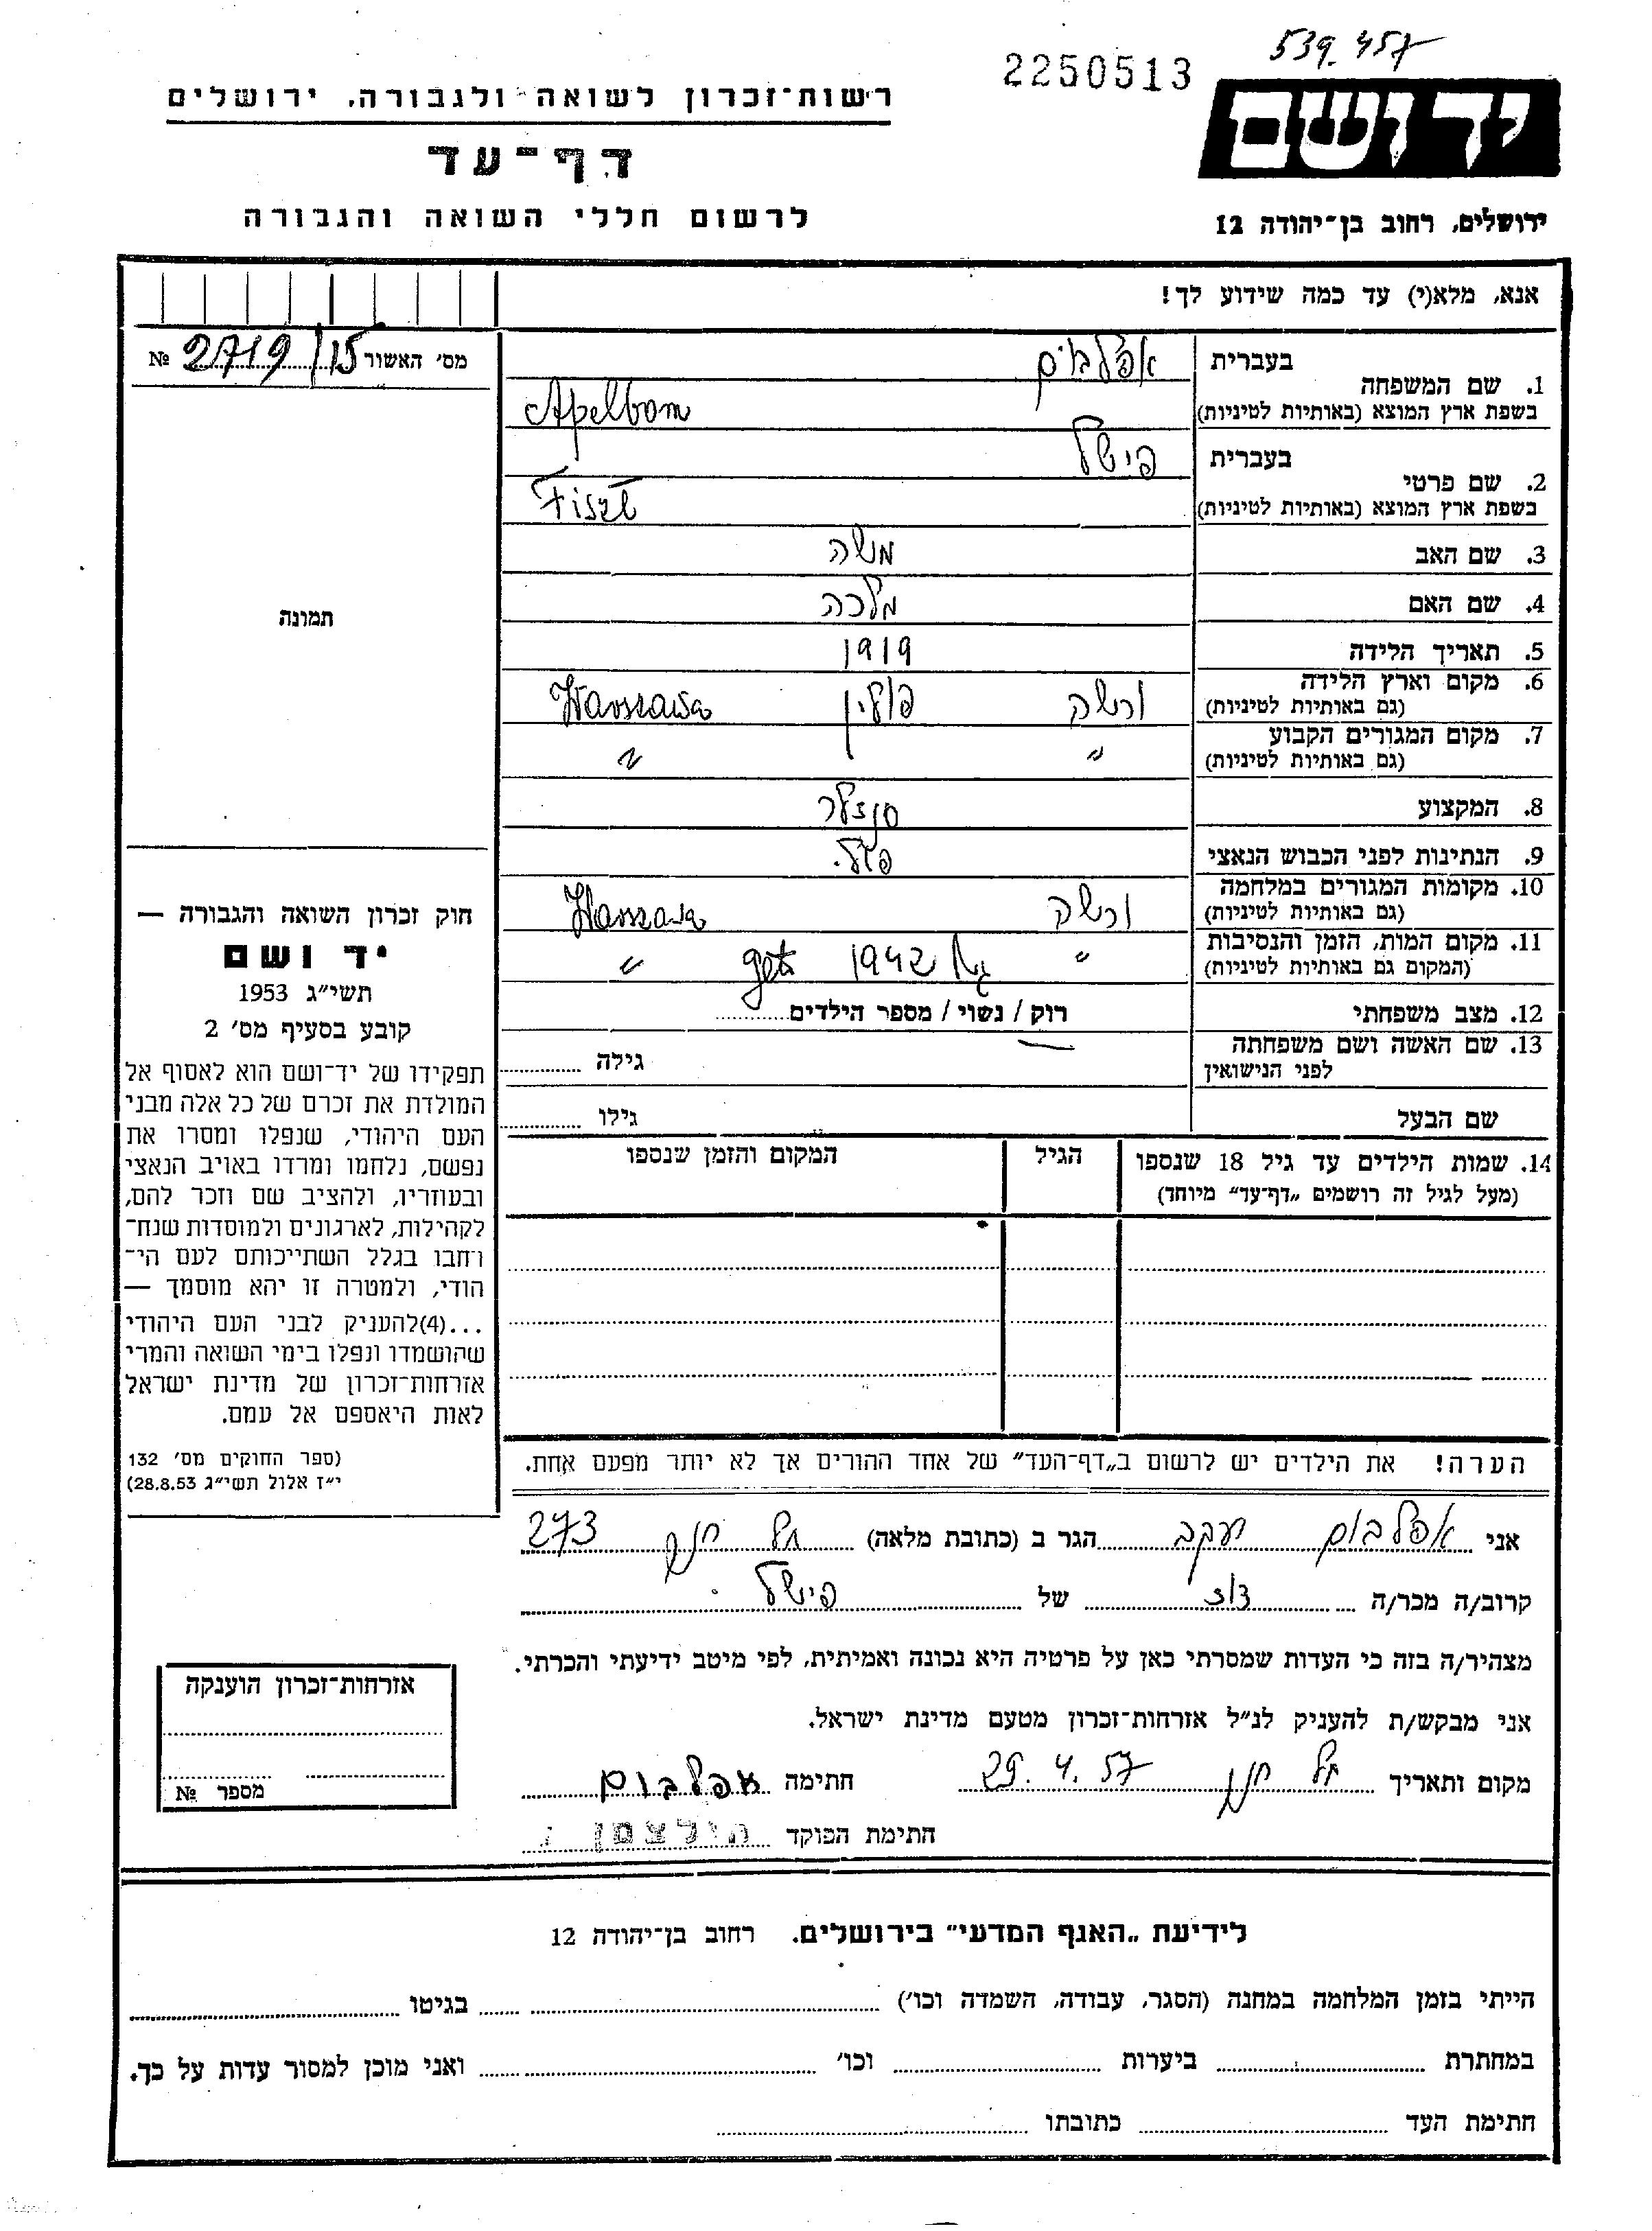 539.457
2250513
יד ושם
רשות־זכרון לשואה ולגבורה, ירושלים
דף־עד
לרשום חללי השואה והגבורה
ירושלים, רחוב בן־יהודה 12
אנא, מלא(י) עד כמה שידוע לך!
מס׳ האשור 15/2719 №
1. שם המשפחה
בעברית אפלבוים
בשפת ארץ המוצא (באותיות לטיניות) Apelbom
2. שם פרטי
בעברית פישל
בשפת ארץ המוצא (באותיות לטיניות) Fiszl
3. שם האב משה
4. שם האם מלכה
5. תאריך הלידה 1919
6. מקום וארץ הלידה ורשה פולין Warszawa
(גם באותיות לטיניות)
7. מקום המגורים הקבוע " "
(גם באותיות לטיניות)
8. המקצוע
9. הנתינות לפני הכבוש הנאצי פול.
10. מקומות המגורים במלחמה ורשה Warszawa
(גם באותיות לטיניות)
11. מקום המות, הזמן והנסיבות " 1942 get "
(המקום גם באותיות לטיניות)
12. מצב משפחתי רוק / נשוי / מספר הילדים
13. שם האשה ושם משפחתה
לפני הנישואין
גילה
שם הבעל גילו
14. שמות הילדים עד גיל 18 שנספו הגיל המקום והזמן שנספו
(מעל לגיל זה רושמים „דף־עד” מיוחד)
תמונה
חוק זכרון השואה והגבורה —
יד ושם
תשי״ג 1953
קובע בסעיף מס׳ 2
תפקידו של יד־ושם הוא לאסוף אל
המולדת את זכרם של כל אלה מבני
העם היהודי, שנפלו ומסרו את
נפשם, נלחמו ומרדו באויב הנאצי
ובעוזריו, ולהציב שם וזכר להם,
לקהילות, לארגונים ולמוסדות שנח־
רחבו בגלל השתייכותם לעם הי־
הודי, ולמטרה זו יהא מוסמך —
...(4)להעניק לבני העם היהודי
שהושמדו ונפלו בימי השואה והמרי
אזרחות־זכרון של מדינת ישראל
לאות היאספם אל עמם.
(ספר החוקים מס׳ 132
י״ז אלול תשי״ג 28.8.53)
הערה! את הילדים יש לרשום ב„דף־העד” של אחד ההורים אך לא יותר מפעם אחת.
אני אפלבום יעקב הגר ב (כתובת מלאה) תל חנן 273
קרוב/ה מכר/ה דוד של פישל
מצהיר/ה בזה כי העדות שמסרתי כאן על פרטיה היא נכונה ואמיתית, לפי מיטב ידיעתי והכרתי.
אני מבקש/ת להעניק לנ״ל אזרחות־זכרון מטעם מדינת ישראל.
מקום ותאריך תל חנן 29.4.57 חתימה אפלבום
חתימת הפוקד הולצמן
אזרחות־זכרון הוענקה
מספר №
לידיעת „האגף המדעי” בירושלים. רחוב בן־יהודה 12
הייתי בזמן המלחמה במחנה (הסגר, עבודה, השמדה וכו׳) בגיטו
במחתרת ביערות וכו׳ ואני מוכן למסור עדות על כך.
חתימת העד כתובתו